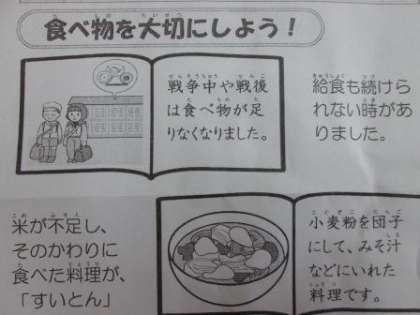 食べ物を大切にしよう！
戦争中や戦後
は食べ物が足
りなくなりました。
給食も続けら
れない時があ
りました。
米が不足し、
そのかわりに
食べた料理が、
「すいとん」
小麦粉を団子
にして、みそ汁
などにいれた
料理です。